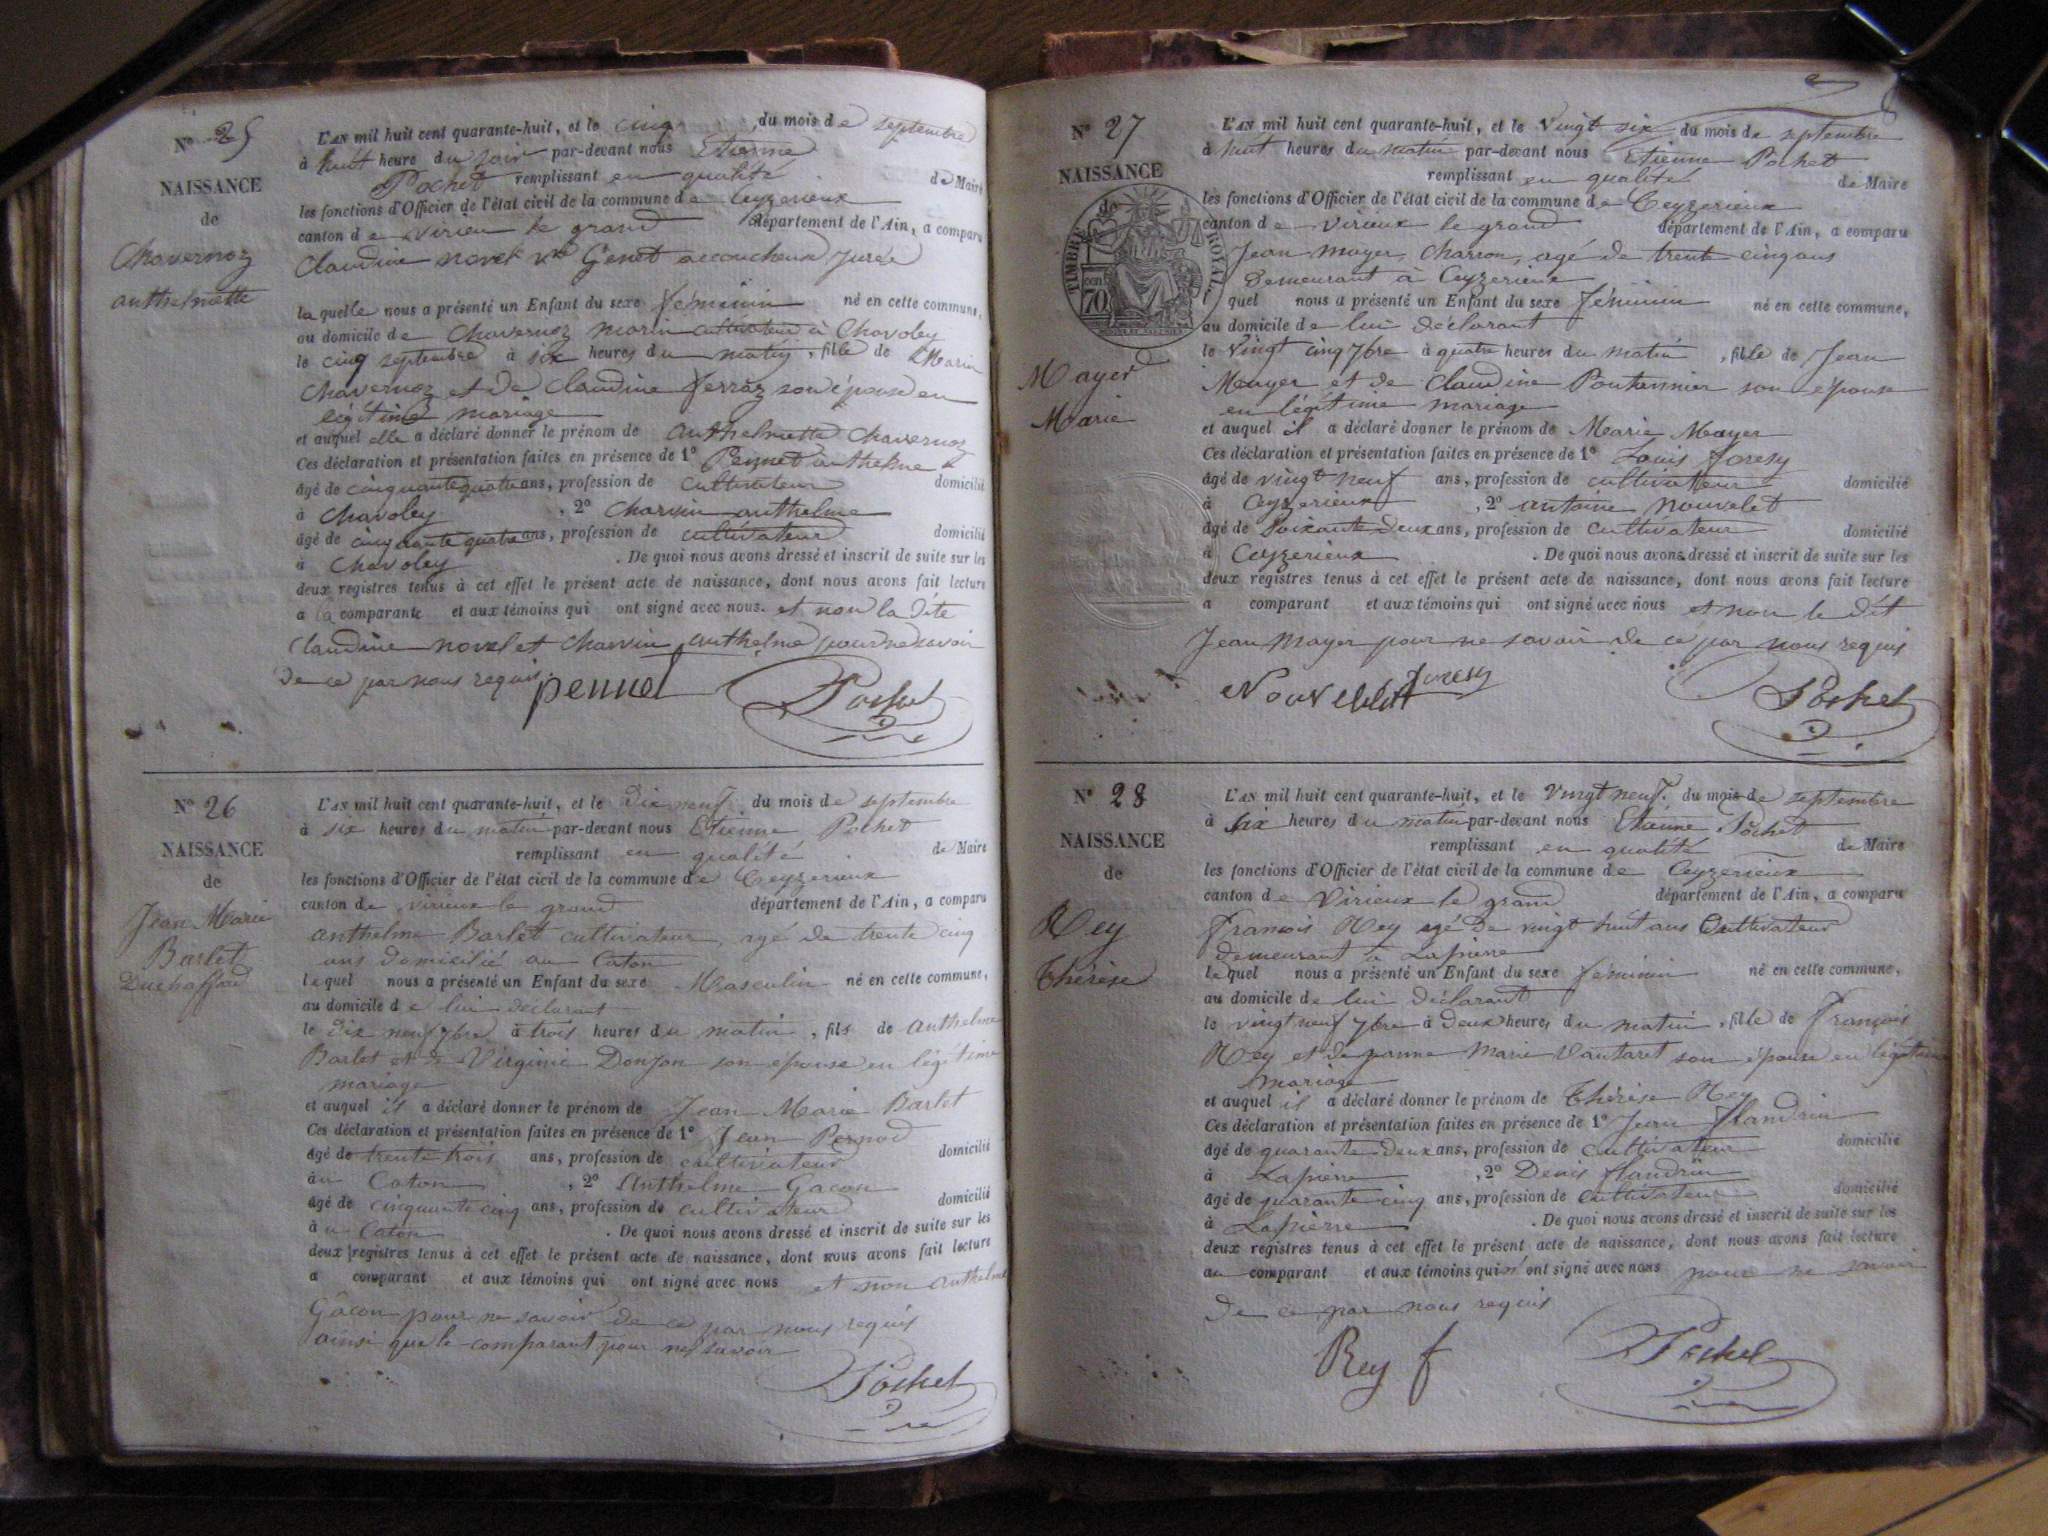 Nº 25
NAISSANCE
de
Chavernoz
anthelmette
L'AN mil huit cent quarante-huit, et le cinq du mois de septembre
à huit heure du soir par-devant nous Etienne
Pochet remplissant en qualité de Maire
les fonctions d'Officier de l'état civil de la commune de Ceyzerieux
canton de virieu le grand département de l'Ain, a comparu
Claudine novel vve Genet accoucheuse jurée
laquelle nous a présenté un Enfant du sexe féminin né en cette commune,
au domicile de Chavernoz marin cultivateur à Chavoley
le cinq septembre à six heures du matin, fille de Marin
Chavernoz et de Claudine ferraz son épouse en
légitime mariage
et auquel elle a déclaré donner le prénom de anthelmette Chavernoz
Ces déclaration et présentation faites en présence de 1º Pennet anthelme
âgé de cinquante quatre ans, profession de cultivateur domicilié
à Chavoley, 2º Charvin anthelme
âgé de cinquante quatre ans, profession de cultivateur domicilié
à Chavoley. De quoi nous avons dressé et inscrit de suite sur les
deux registres tenus à cet effet le présent acte de naissance, dont nous avons fait lecture
a la comparante et aux témoins qui ont signé avec nous. et non la dite
Claudine novel et Charvin anthelme pour ne savoir
de ce par nous requis
pennet Pochet
Nº 26
NAISSANCE
de
Jean Marie
Barlet
L'AN mil huit cent quarante-huit, et le dix neuf du mois de septembre
à six heures du matin par-devant nous Etienne Pochet
remplissant en qualité de Maire
les fonctions d'Officier de l'état civil de la commune de Ceyzerieux
canton de virieux le grand département de l'Ain, a comparu
anthelme Barlet cultivateur, agé de trente cinq
ans domicilié au Caton
lequel nous a présenté un Enfant du sexe Masculin né en cette commune,
au domicile de lui déclarant
le dix neuf 7bre à trois heures du matin, fils de anthelme
Barlet et de Virginie Donjon son epouse en légitime
mariage
et auquel il a déclaré donner le prénom de Jean Marie Barlet
Ces déclaration et présentation faites en présence de 1º Jean Pernod
âgé de trente trois ans, profession de cultivateur domicilié
au Caton, 2º Anthelme Gacon
âgé de cinquante cinq ans, profession de cultivateur domicilié
à u Caton. De quoi nous avons dressé et inscrit de suite sur les
deux registres tenus à cet effet le présent acte de naissance, dont nous avons fait lecture
a comparant et aux témoins qui ont signé avec nous et non anthelme
Gacon pour ne savoir de ce par nous requis
ainsi que le comparant pour ne savoir
Pochet
Nº 27
NAISSANCE
de
TIMBRE ROYAL
70
Mayer
Marie
L'AN mil huit cent quarante-huit, et le Vingt six du mois de septembre
à huit heures du matin par-devant nous Etienne Pochet
remplissant en qualité de Maire
les fonctions d'Officier de l'état civil de la commune de Ceyzerieux
canton de virieux le grand département de l'Ain, a comparu
Jean mayer, charron, agé de trente cinq ans
demeurant à Ceyzerieux
quel nous a présenté un Enfant du sexe féminin né en cette commune,
au domicile de lui déclarant
le vingt cinq 7bre à quatre heures du matin, fille de Jean
Mayer et de Claudine Ponthennier son epouse
en légitime mariage
et auquel il a déclaré donner le prénom de Marie Mayer
Ces déclaration et présentation faites en présence de 1º Louis foresy
âgé de vingt neuf ans, profession de cultivateur domicilié
à Ceyzerieux, 2º antoine nouvelet
âgé de soixante deux ans, profession de cultivateur domicilié
à Ceyzerieux. De quoi nous avons dressé et inscrit de suite sur les
deux registres tenus à cet effet le présent acte de naissance, dont nous avons fait lecture
a comparant et aux témoins qui ont signé avec nous et non le dit
Jean Mayer pour ne savoir de ce par nous requis
foresy Pochet
Nº 28
NAISSANCE
de
Rey
thérèse
L'AN mil huit cent quarante-huit, et le vingt neuf du mois de septembre
à six heures du matin par-devant nous Etienne Pochet
remplissant en qualité de Maire
les fonctions d'Officier de l'état civil de la commune de Ceyzerieux
canton de Virieux le grand département de l'Ain, a comparu
françois Rey agé de vingt huit ans Cultivateur
demeurant à Lapierre
lequel nous a présenté un Enfant du sexe féminin né en cette commune,
au domicile de lui déclarant
le vingt neuf 7bre à deux heures du matin, fille de françois
Rey et de janne marie vautaret son épouse en légitime
mariage
et auquel il a déclaré donner le prénom de thérèse Rey
Ces déclaration et présentation faites en présence de 1º Jean flandrin
âgé de quarante deux ans, profession de cultivateur domicilié
à Lapierre, 2º Denis flandrin
âgé de quarante cinq ans, profession de cultivateur domicilié
à Lapierre. De quoi nous avons dressé et inscrit de suite sur les
deux registres tenus à cet effet le présent acte de naissance, dont nous avons fait lecture
au comparant et aux témoins qui n'ont signé avec nous pour ne savoir
de ce par nous requis
Rey f Pochet